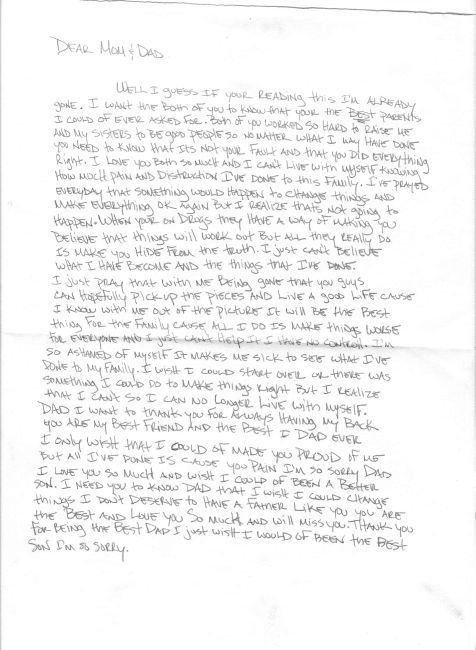 DEAR MOM & DAD
WELL I GUESS IF YOUR READING this I'M ALREADY
gone. I WANT tHE BotH OF YOU to KNOW tHAT YOUR tHE BEST PARENTS
I COULD OF EVER ASKED FOR. BotH OF YOU WORKED SO HARD to RAISE ME
AND MY SISTERS to BE gooD PEOPLE SO NO MATTER WHAT I MAY HAVE DONE
YOU NEED to KNOW tHAT ItS NOT YOUR FAULT AND tHAT YOU DID EVERYtHING
RIGHT. I LOVE YOU BotH SO MUCH AND I CAN't LIVE WITH MYSELF KNOWING
HOW MUCH PAIN AND DISTRUCTION I'VE DONE to tHIS FAMILY. I'VE PRAYED
EVERYDAY tHAT SOMETHING WOULD HAPPEN to CHANGE tHINGS AND
MAKE EVERYTHING OK AGAIN BUT I REALIZE tHATS NOT going to
HAPPEN. WHEN YOUR ON DRUGS tHEY HAVE A WAY OF MAKING YOU
BELIEVE tHAT tHINGS WILL WORK OUT BUT ALL tHEY REALLY DO
IS MAKE YOU HIDE FROM tHE tRUTH. I JUST CAN't BELIEVE
WHAT I HAVE BECOME AND tHE tHINGS tHAT I'VE DONE.
I JUST PRAY tHAT WITH ME BEING gONE tHAT YOU guyS
CAN HOPEFULLY PICK UP tHE PIECES AND LIVE A gooD LIFE CAUSE
I KNOW WITH ME OUT OF tHE PICTURE It WILL BE tHE BEST
tHING FOR tHE FAMILY CAUSE ALL I DO IS MAKE tHINGS WORSE
FOR EVERYONE AND I JUST CAN't HELP It I HAVE NO CONTROL. I'M
SO ASHAMED OF MYSELF It MAKES ME SICK to SEE WHAT I'VE
DONE to MY FAMILY. I WISH I COULD START OVER OR tHERE WAS
SOMETHING I COULD DO to MAKE tHINGS RIGHT BUT I REALIZE
tHAT I CAN't SO I CAN NO LONGER LIVE WITH MYSELF.
DAD I WANT to tHANK YOU FOR ALWAYS HAVING MY BACK
YOU ARE MY BEST FRIEND AND tHE BEST I DAD EVER
I ONLY WISH tHAT I COULD OF MADE YOU PROUD OF ME
BUT ALL I'VE DONE IS CAUSE YOU PAIN I'M SO SORRY DAD
I LOVE YOU SO MUCH AND WISH I COULD OF BEEN A BETTER
SON. I NEED YOU to KNOW DAD tHAT I WISH I COULD CHANGE
tHINGS I DON't DESERVE to HAVE A FATHER LIKE YOU YOU ARE
tHE BEST AND LOVE YOU SO MUCH AND WILL MISS YOU. tHANK YOU
FOR BEING tHE BEST DAD I JUST WISH I WOULD OF BEEN tHE BEST
SON I'M SO SORRY.